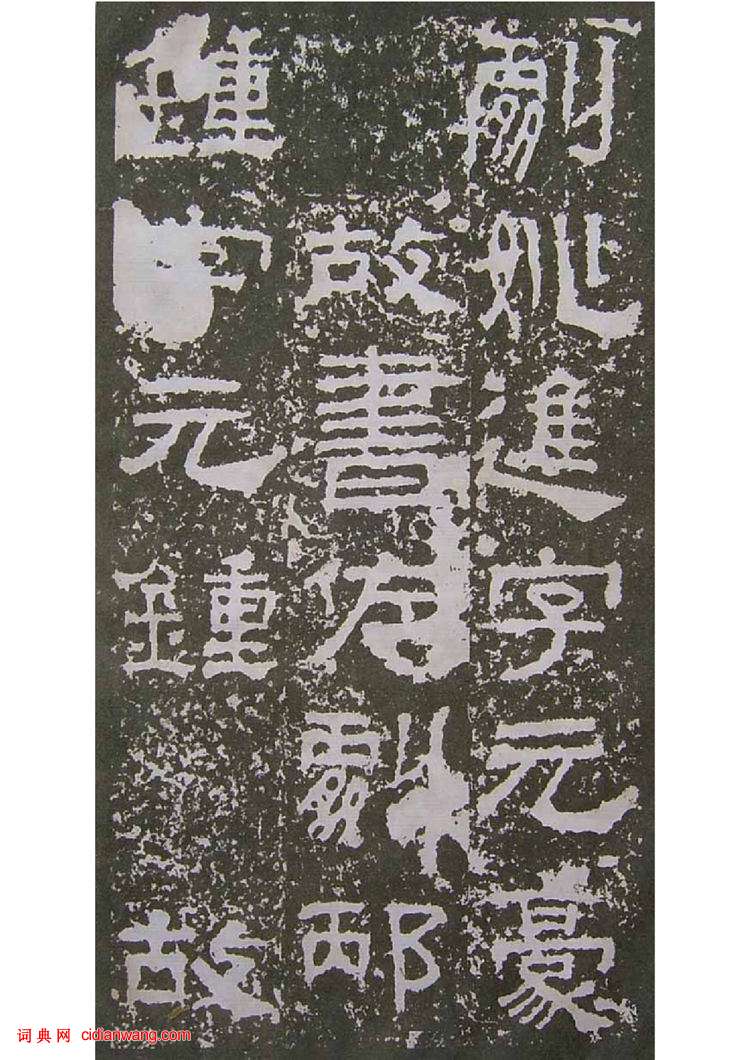 劇姚進字元豪
故書佐劇邴
鍾字元鍾　故
词典网 cidianwang.com